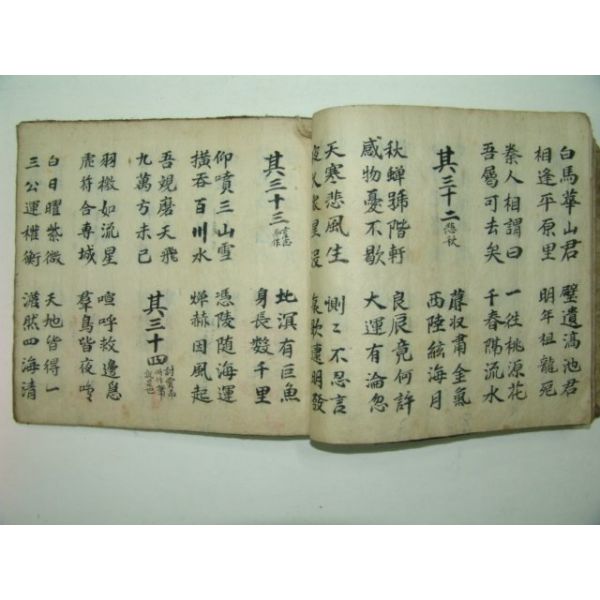 白馬華山君
相逢平原里
璧遺滈池君
明年祖龍死
秦人相謂曰
吾屬可去矣
一往桃源花
千春隔流水
其三十二 悲秋
蓐收肅金氣
西陸絃海月
秋蟬號階軒
感物憂不歇
良辰竟何許
大運有淪忽
天寒悲風生
夜久衆星沒
惻〻不忍言
哀歌達明發
其三十三
北溟有巨魚
身長數千里
仰噴三山雪
橫吞百川水
憑陵随海運
燀赫因風起
吾覌磨天飛
九萬方未已
其三十四
羽檄如流星
虎符合專城
喧呼救邊急
羣鳥皆夜鳴
白日曜紫微
三公運權衡
天地皆得一
澹然四海清